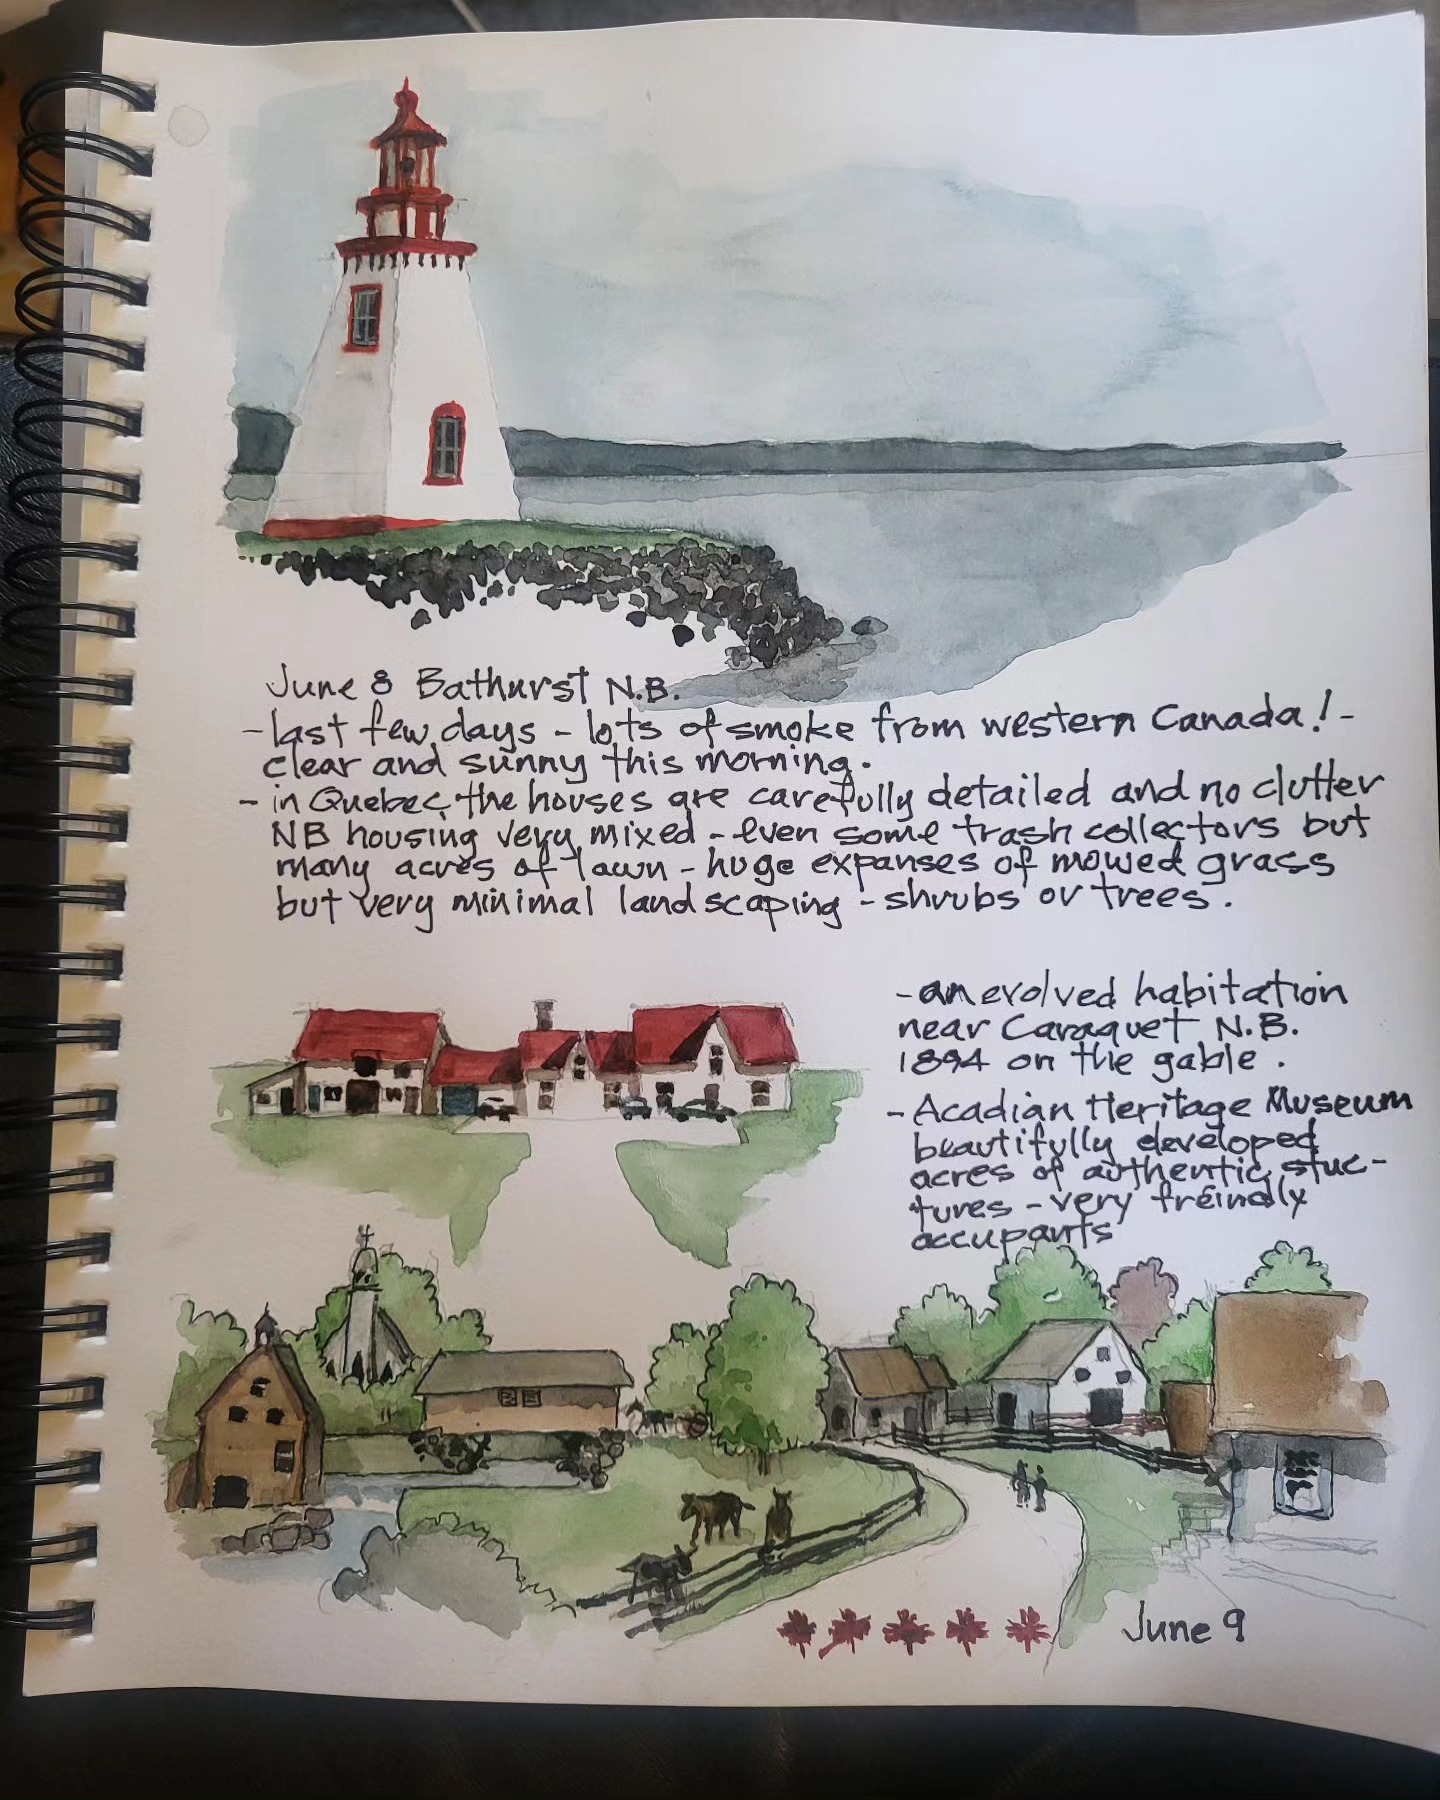 June 8 Bathurst N.B.
- last few days - lots of smoke from western Canada! -
clear and sunny this morning.
- in Quebec, the houses are carefully detailed and no clutter
NB housing very mixed - even some trash collectors but
many acres of lawn - huge expanses of mowed grass
but very minimal landscaping - shrubs or trees.
- an evolved habitation
near Caraquet N.B.
1894 on the gable.
- Acadian Heritage Museum
beautifully developed
acres of authentic stuc-
tures - very freindly
accupants
June 9